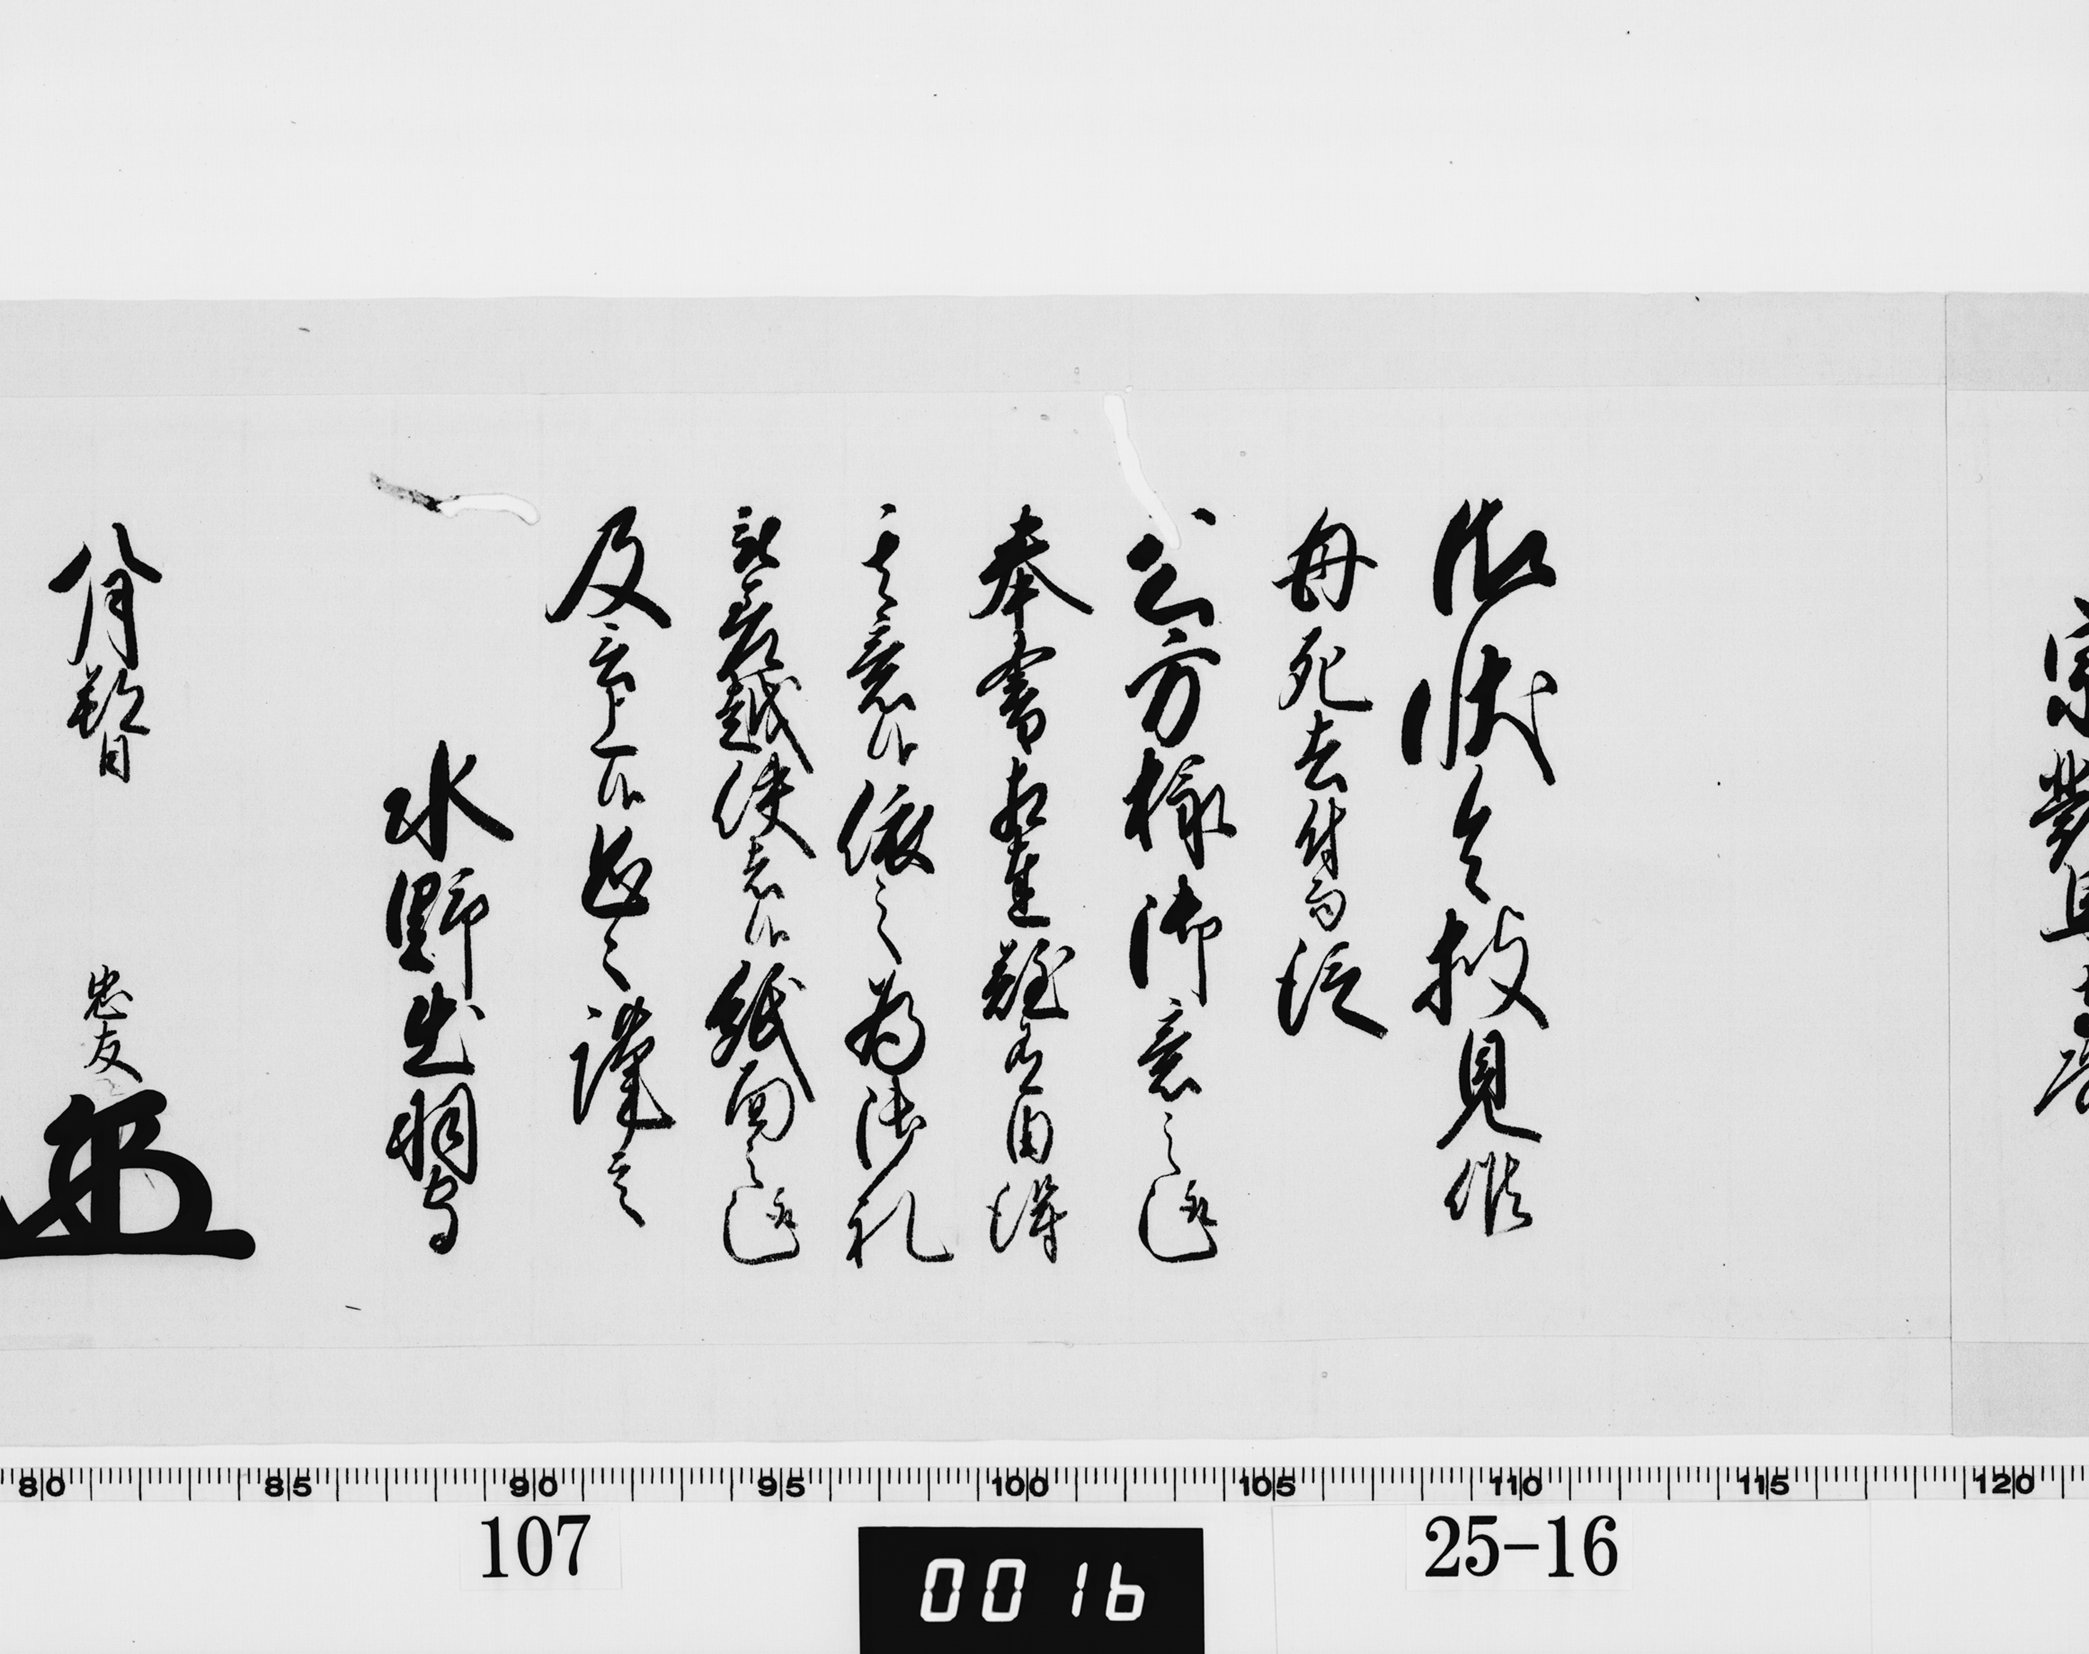 宗對馬
御状令披見候
母死去付而従
公方様御意之通
奉書相達難有由得
其意候依之為御礼
被差越使者候紙面之通
及言上候恐々謹言
水野出羽守
八月朔日 忠友
107
0016
25-16
80 85 90 95 100 105 110 115 120